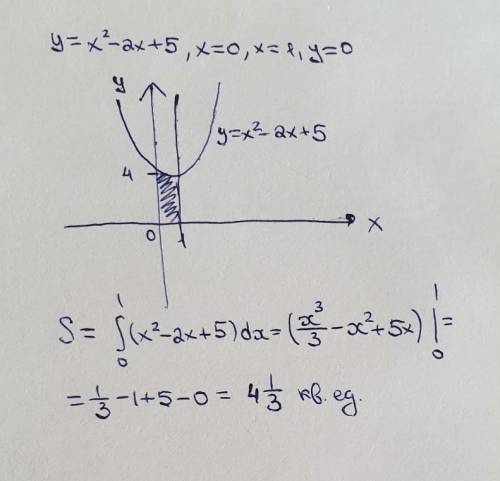 y = x² - 2x + 5, x = 0, x = 1, y = 0
y
y = x² - 2x + 5
4
x
0 1
S = ∫₀¹ (x² - 2x + 5) dx = (x³/3 - x² + 5x) |₀¹ =
= 1/3 - 1 + 5 - 0 = 4 1/3 кв. ед.